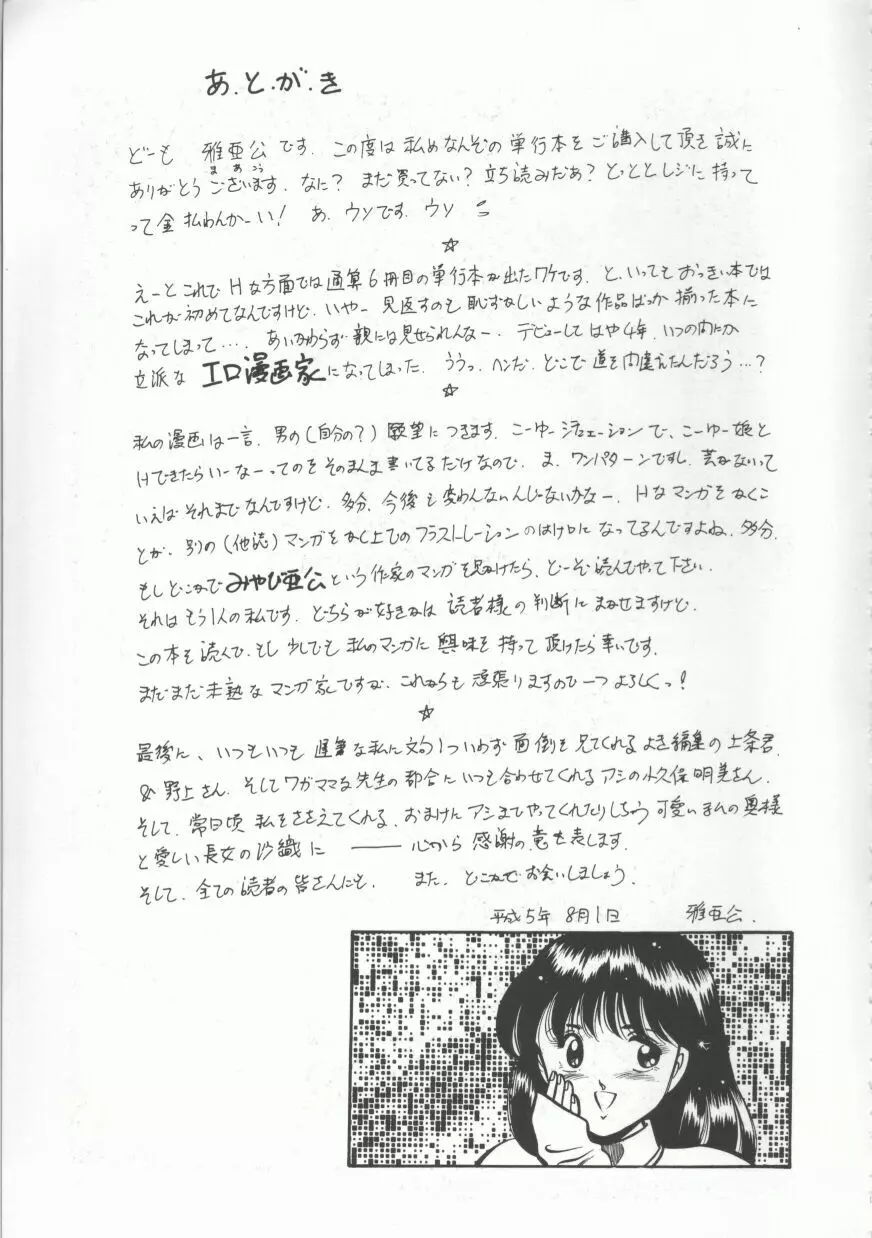 あ.と.が.き
どーも 雅亜公です. この度は私めなんぞの単行本をご購入して頂き誠に
まあこう
ありがとうございます. なに? まだ買ってない? 立ち読みだあ? とっととレジに持って
って金払わんかーい! あ. ウソです. ウソ
☆
えーとこれでHな方面では通算6冊目の単行本が出たワケです. と.いってもおっきい本では
これが初めてなんですけど. いやー 見返すのも恥ずかしいような作品ばっか揃った本に
なってしまって…. あいかわらず親には見せられんなー. デビューしてはや4年. いつの間にか
立派な エロ漫画家になってしまった. ううっ. ヘンだ. どこで道を間違えたんだろう…?
☆
私の漫画は一言. 男の(自分の?)願望につきます. こーゆーシチュエーションで、こーゆー娘と
Hできたらいーなーってのをそのまんま書いてるだけなので. ま. ワンパターンですし. 芸がないって
いえばそれまでなんですけど. 多分. 今後も変わんないんじゃないかなー. Hなマンガをかくこ
とが. 別の(他誌)マンガをかく上でのフラストレーションのはけ口になってるんですよね. 多分.
もしどこかでみやび亜公という作家のマンガを見かけたら、どーぞ読んでやって下さい.
それはもう1人の私です. どちらが好きかは 読者様の判断にまかせますけど.
この本を読んで. もし少しでも私のマンガに興味を持って頂けたら幸いです.
まだまだ未熟なマンガ家ですが. これからも頑張りますので一つよろしくっ!
☆
最後に、いつもいつも 遅筆な私に文句1ついわず面倒を見てくれるよき編集の上条君.
& 野上さん. そしてワガママな先生の都合にいつも合わせてくれるアシの小久保明美さん.
そして. 常日頃私をささえてくれる. おまけにアシまでやってくれたりしちゃう可愛いまんの奥様
と愛しい長女の沙織に ―― 心から感謝の意を表します.
そして. 全ての読者の皆さんにも. また. どこかでお会いしましょう.
平成5年 8月1日 雅亜公.